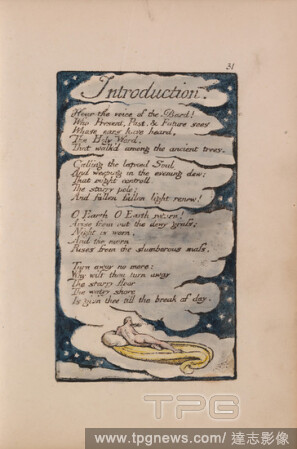 31
Introduction.
Hear the voice of the Bard!
Who Present, Past, & Future sees
Whose ears have heard,
The Holy Word,
That walk'd among the ancient trees.
Calling the lapsed Soul
And weeping in the evening dew:
That might controll
The starry pole;
And fallen fallen light renew!
O Earth O Earth return!
Arise from out the dewy grass;
Night is worn,
And the morn
Rises from the slumberous mass.
Turn away no more:
Why wilt thou turn away
The starry floor
The watry shore
Is giv'n thee till the break of day.
TPG
www.tpgnews.com/達志影像